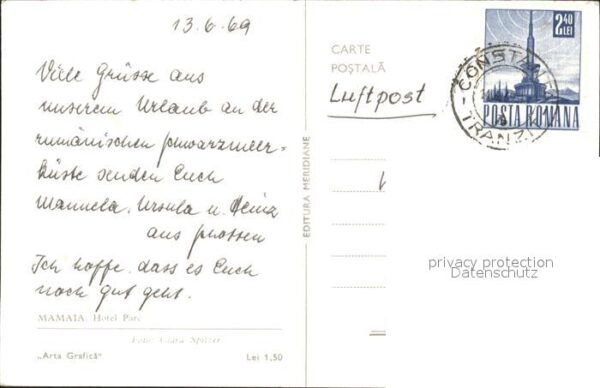 13.6.69
Viele Grüsse aus
unserem Urlaub an der
rumänischen Schwarzmeer=
küste senden Euch
Manuela, Ursula u. Heinz
aus
Ich hoffe, dass es Euch
noch gut geht.
MAMAIA: Hotel Parc
Foto: Clara Spitzer
„Arta Grafică”
Lei 1,50
EDITURA MERIDIANE
CARTE
POŞTALĂ
Luftpost
2,40
LEI
POSTA ROMANA
CONSTANȚA
TRANZIT
privacy protection
Datenschutz